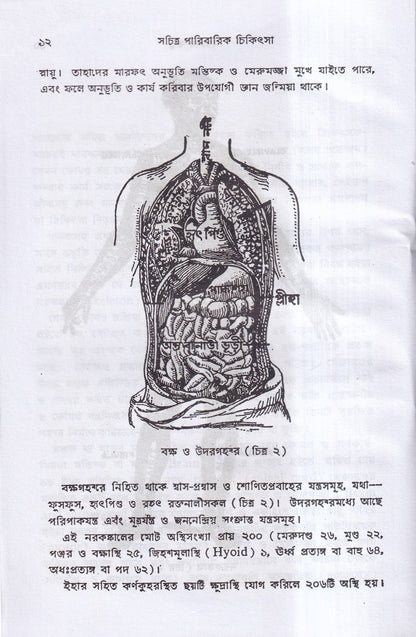 ১২
সচিত্র পারিবারিক চিকিৎসা
স্নায়ু। তাহাদের মারফৎ অনুভূতি মস্তিষ্ক ও মেরুমজ্জা মুখে যাইতে পারে,
এবং ফলে অনুভূতি ও কার্য করিবার উপযোগী জ্ঞান জন্মিয়া থাকে।
হৃৎ পিণ্ড
প্লীহা
বক্ষ ও উদরগহ্বর (চিত্র ২)
বক্ষগহ্বরে নিহিত থাকে শ্বাস-প্রশ্বাস ও শোণিতপ্রবাহের যন্ত্রসমূহ, যথা—
ফুসফুস, হৃৎপিণ্ড ও বৃহৎ রক্তনালীসকল (চিত্র ২)। উদরগহ্বরমধ্যে আছে
পরিপাকযন্ত্র এবং মূত্রযন্ত্র ও জননেন্দ্রিয় সংক্রান্ত যন্ত্রসমূহ।
এই নরকঙ্কালের মোট অস্থিসংখ্যা প্রায় ২০০ (মেরুদণ্ড ২৬, মুণ্ড ২২,
পঞ্জর ও বক্ষাস্থি ২৫, জিহ্বামূলাস্থি (Hyoid) ১, ঊর্ধ্ব প্রত্যঙ্গ বা বাহু ৬৪,
অধঃপ্রত্যঙ্গ বা পদ ৬২)।
ইহার সহিত কর্ণকুহরস্থিত ছয়টি ক্ষুদ্রাস্থি যোগ করিলে ২০৬টি অস্থি হয়।